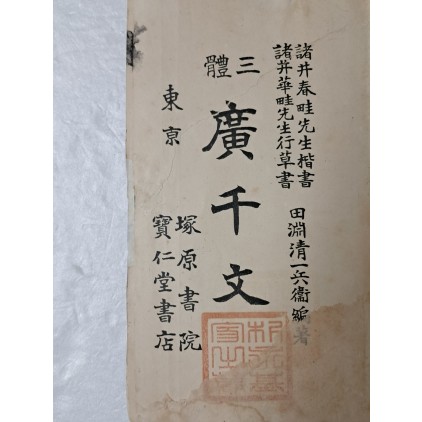 諸井春畦先生楷書
諸井華畦先生行草書
田淵清一兵衞編著
三體
廣千文
東京
塚原書院
寶仁堂書店